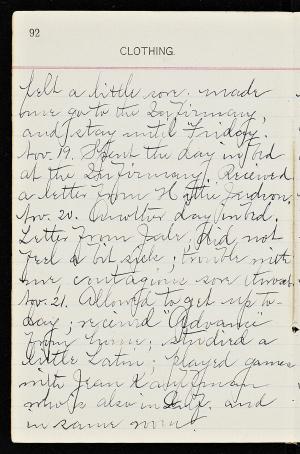 92
CLOTHING.
felt a little sore. made
me go to the Infirmary,
and stay until Friday.
Nov. 19. Spent the day in bed
at the Infirmary. Received
a letter from Hattie
Nov. 20. Another day in bed.
Letter from Did not
feel a bit sick; trouble with
me, contagious sore throat.
Nov. 21. Allowed to get up to-
day; received "Advance"
from home; studied a
little Latin; played games
with Jean Kauffman
who is also in Inf. and
in same room.